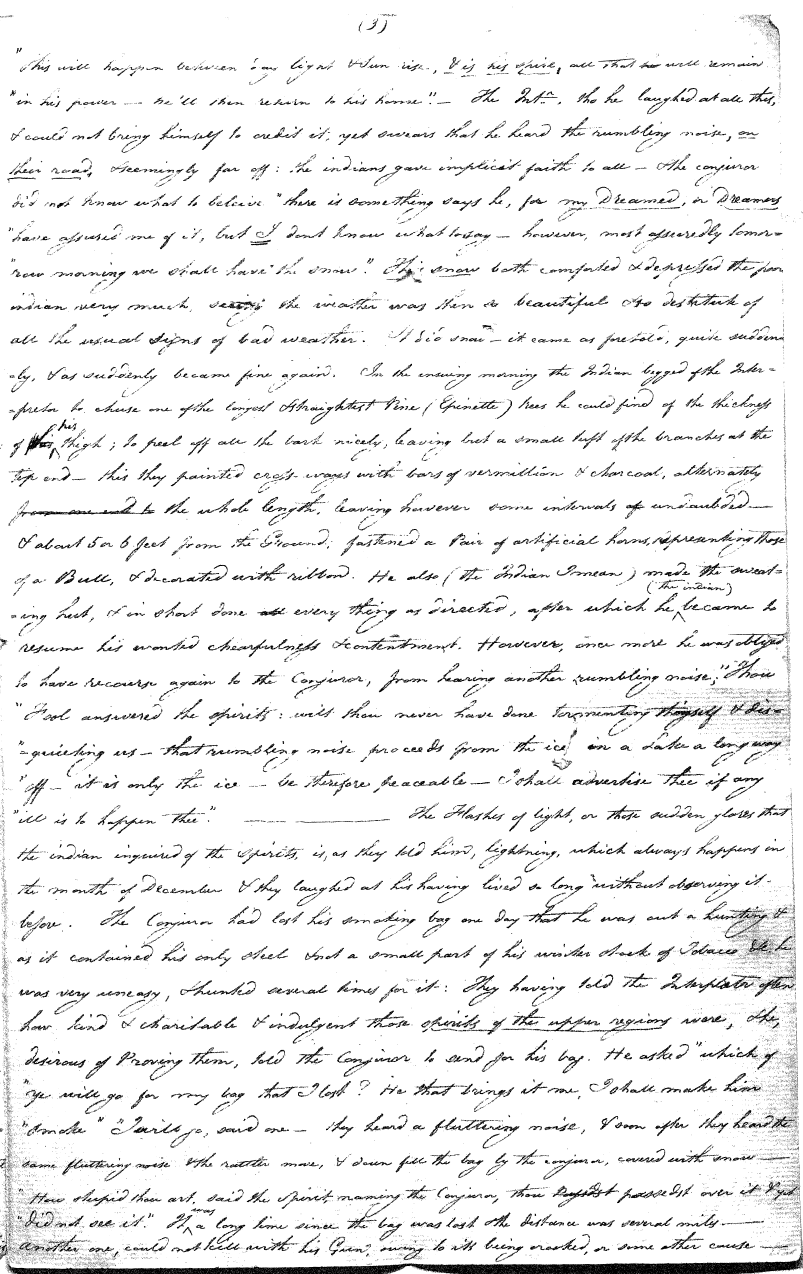 (3)
"This will happen between day light & Sun rise, & is his spirit, all that he will remain
"in his power — he'll then return to his home". — The Intr. tho he laughed at all this,
& could not bring himself to credit it, yet swears that he heard the rumbling noise, on
their road, & seemingly far off: the indians gave implicit faith to all — & the conjuror
did not know what to beleive "there is something says he, for my Dreamed, or Dreamers
"have assured me of it, but I dont know what to say — however, most assuredly tomor=
"row morning we shall have the snow". This snow both comforted & depressed the poor
indian very much, seeing the weather was then so beautiful & so destitute of
all the usual signs of bad weather. It did snow — it came as foretold, quite sudden
=ly, & as suddenly became fine again. In the ensuing morning the Indian begged of the Inter=
=pretor to chuse one of the longest & straightest Pine (Epinette) trees he could find of the thickness
of his thigh; to peel off all the bark nicely, leaving but a small tuft of the branches at the
top end — this they painted cross-ways with bars of vermillion & charcoal, alternately
from one end to the whole length, leaving however some intervals of undaubded —
& about 5 or 6 feet from the Ground; fastened a Pair of artificial horns, representing those
of a Bull, & decorated with ribbon. He also (the Indian I mean) made the sweat=
=ing hut, & in short done all every thing as directed, after which he (the indian) became to
resume his wonted chearfulness & contentment. However, once more he was obliged
to have recourse again to the Conjuror, from hearing another rumbling noise; "Thou
"Fool answered the spirits: wilt thou never have done tormenting thyself & dis=
"=quieting us — that rumbling noise proceeds from the ice in a Lake a long way
"off — it is only the ice — be therefore peaceable — I shall advertise thee if any
"ill is to happen thee". ——— The Flashes of light, or those sudden glares that
the indian inquired of the Spirits, is, as they told him, lightning, which always happens in
the month of December & they laughed at his having lived so long without observing it
before. The Conjuror had lost his smoking bag one day that he was out a hunting &
as it contained his only steel & not a small part of his winter stock of Tobacco &c he
was very uneasy, & hunted several times for it: They having told the Interpreter often
how kind & charitable & indulgent those spirits of the upper regions were, & he,
desirous of Proving them, told the Conjuror to send for his bag. He asked "which of
"ye will go for my bag that I lost? He that brings it me, I shall make him
"smoke" "I will go, said one — they heard a fluttering noise, & soon after they heard the
same fluttering noise & the rattler move, & down fell the bag by the conjuror, covered with snow —
"How stupid thou art, said the Spirit, naming the Conjuror, thou passedst over it & yet
"did not see it". It was a long time since the bag was lost & the distance was several miles. —
Another one, could not kill with his Gun, owing to its being crooked, or some other cause —